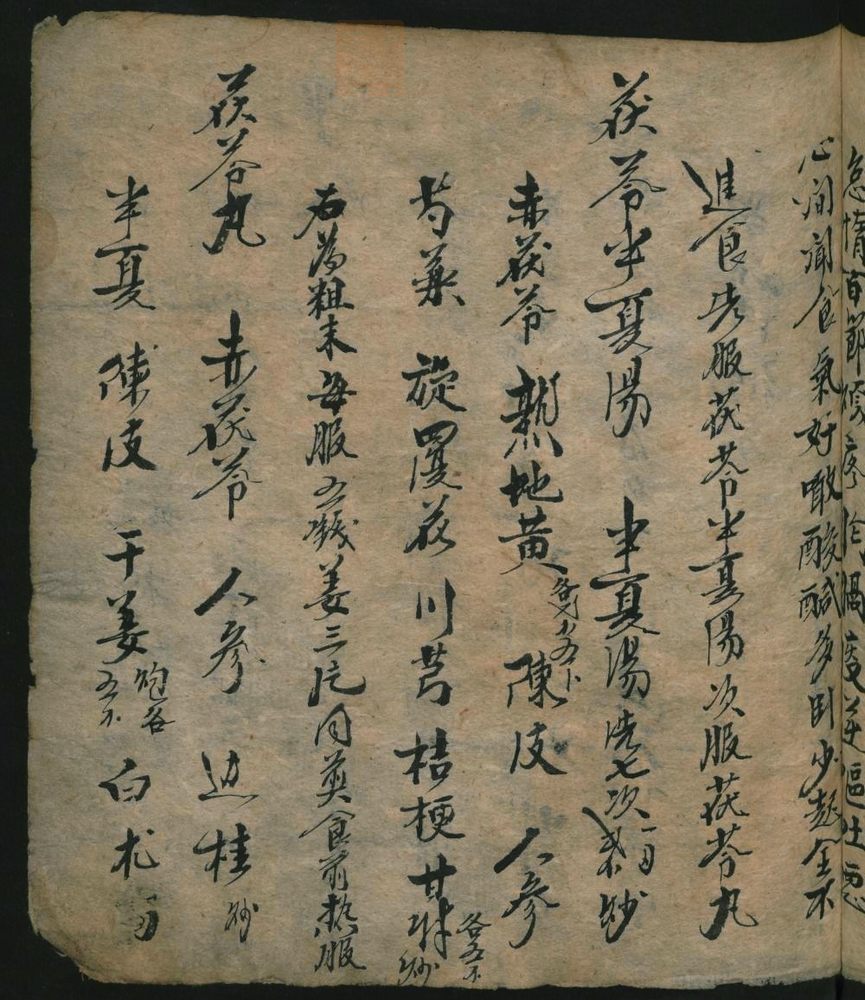 怠惰百節煩疼作渴痰逆嘔吐惡
心聞聞食氣好啖酸醎多卧少起全不
進食先服茯苓半夏湯次服茯苓丸
茯苓半夏湯 半夏湯洗七次一兩炒
赤茯苓 熟地黄各 陳皮 人參
芍藥 旋覆花 川芎 桔梗 甘草炒各五
右為粗末每服五錢姜三片同煎食前热服
茯苓丸 赤茯苓 人參 边桂炒
半夏 陳皮 干姜炮各五 白朮